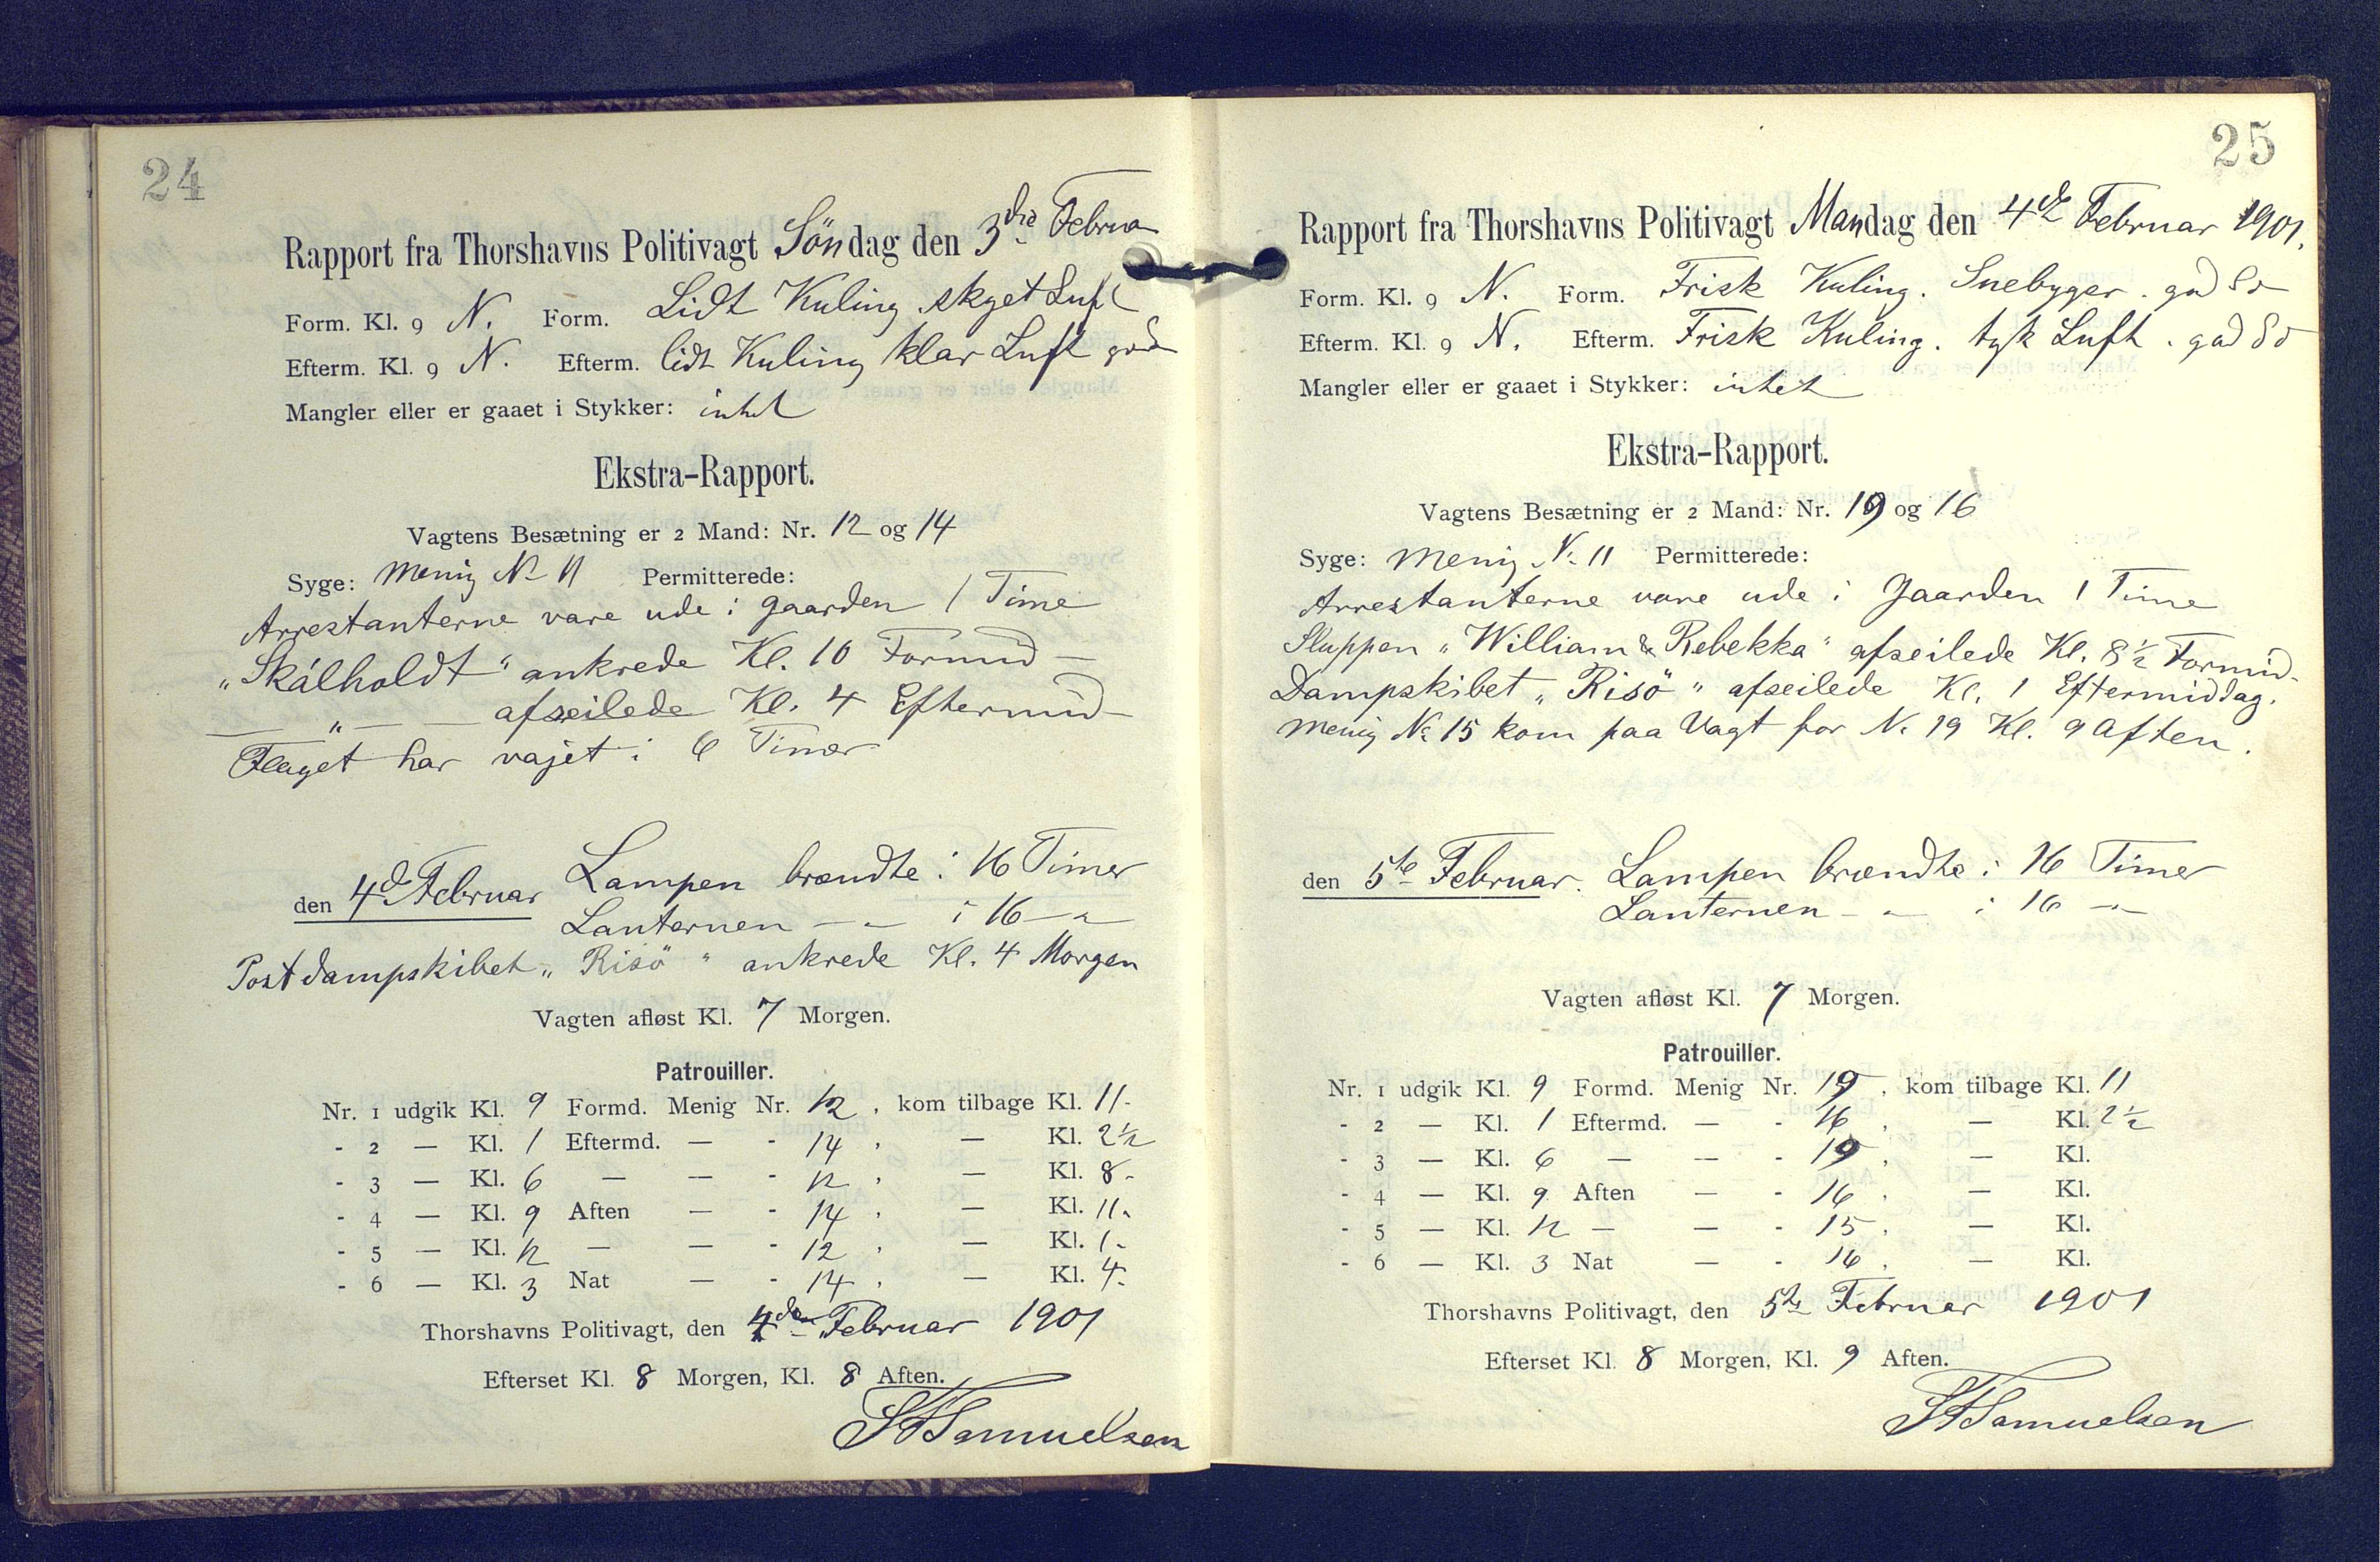 24
Rapport fra Thorshavns Politivagt Söndag den 3die Februa
Form. Kl. 9 N. Form. Lidt Kuling skyet Luft
Efterm. Kl. 9 N. Efterm. lidt Kuling klar Luft god
Mangler eller er gaaet i Stykker: intet
Ekstra-Rapport.
Vagtens Besætning er 2 Mand: Nr. 12 og 14
Syge: Menig No 11 Permitterede:
Arrestanterne vare ude i Gaarden 1 Time
„Skálholdt“ ankrede Kl. 10 Formid-
— „ — afseilede Kl. 4 Eftermid-
Flaget har vajet i 6 Timer
den 4de Februar Lampen brændte i 16 Timer
Lanternen — „ — i 16 — „
Postdampskibet „Risö“ ankrede Kl. 4 Morgen
Vagten afløst Kl. 7 Morgen.
Patrouiller.
Nr. 1 udgik Kl. 9 Formd. Menig Nr. 12, kom tilbage Kl. 11-
- 2 — Kl. 1 Eftermd. — - 14, — Kl. 2½
- 3 — Kl. 6 — — - 12, — Kl. 8-
- 4 — Kl. 9 Aften — - 14, — Kl. 11-
- 5 — Kl. 12 — — - 12, — Kl. 1-
- 6 — Kl. 3 Nat — - 14, — Kl. 4-
Thorshavns Politivagt, den 4de Februar 1901
Efterset Kl. 8 Morgen, Kl. 8 Aften.
Samuelsen
25
Rapport fra Thorshavns Politivagt Mandag den 4de Februar 1901.
Form. Kl. 9 N. Form. Frisk Kuling. Snebyger. god Sö
Efterm. Kl. 9 N. Efterm. Frisk Kuling. tyk Luft. god Sö
Mangler eller er gaaet i Stykker: intet
Ekstra-Rapport.
Vagtens Besætning er 2 Mand: Nr. 19 og 16
Syge: Menig No 11 Permitterede:
Arrestanterne vare ude i Gaarden 1 Time
Sluppen „William & Rebekka“ afseilede Kl. 8½ Formid-
Dampskibet „Risö“ afseilede Kl. 1 Eftermiddag.
Menig No 15 kom paa Vagt for No 19 Kl. 9 Aften.
den 5te Februar. Lampen brændte i 16 Timer
Lanternen — „ — i 16 — „ —
Vagten afløst Kl. 7 Morgen.
Patrouiller.
Nr. 1 udgik Kl. 9 Formd. Menig Nr. 19, kom tilbage Kl. 11
- 2 — Kl. 1 Eftermd. — - 16, — Kl. 2½
- 3 — Kl. 6 — — - 19, — Kl.
- 4 — Kl. 9 Aften — - 16, — Kl.
- 5 — Kl. 12 — — - 15, — Kl.
- 6 — Kl. 3 Nat — - 16, — Kl.
Thorshavns Politivagt, den 5te Februar 1901
Efterset Kl. 8 Morgen, Kl. 9 Aften.
Samuelsen